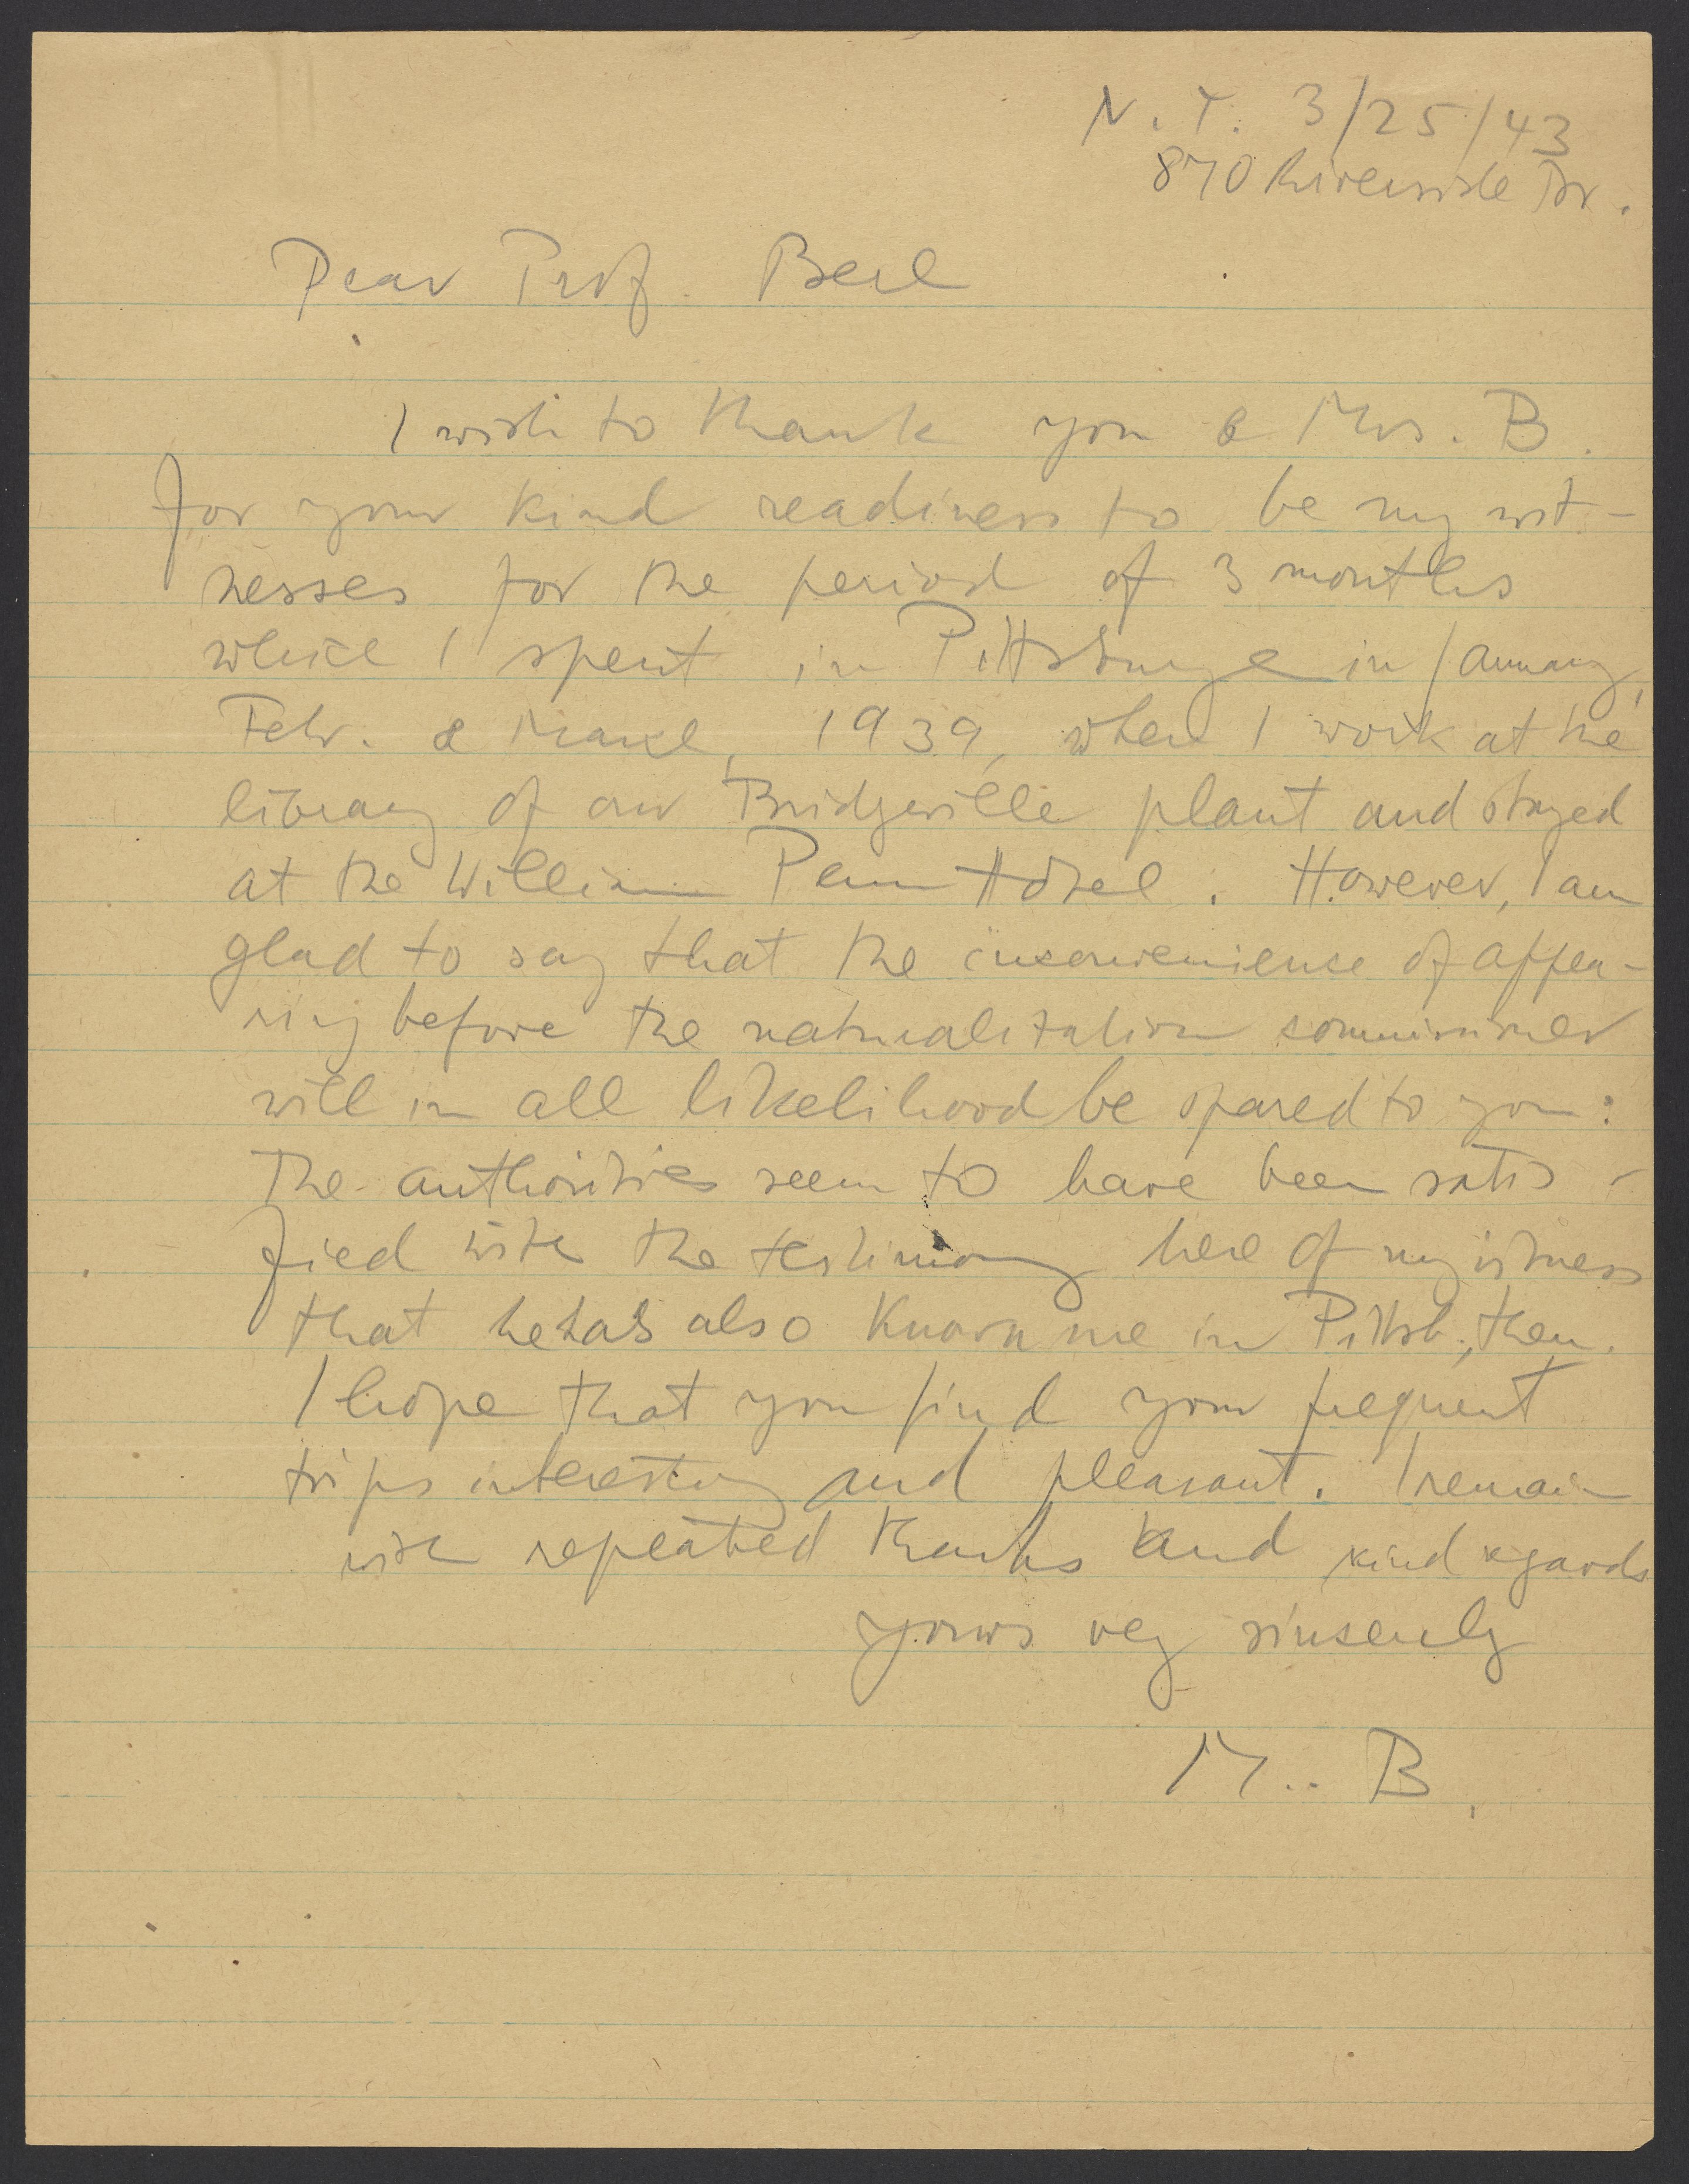 N.Y. 3/25/43
870 Riverside Dr.
Dear Prof. Berl
I wish to thank you & Mrs. B.
for your kind readiness to be my wit-
nesses for the period of 3 months
which I spent in Pittsburge in January,
Febr. & March, 1939, when I work at the
library of our Bridgeville plant and stayed
at the William Penn Hotel. However, I am
glad to say that the inconvenience of appea-
ring before the naturalization commissioner
will in all likelihood be spared to you:
The authorities seem to have been satis-
fied with the testimony here of my witness
that he has also known me in Pittsb., then.
I hope that you find your frequent
trips interesting and pleasant. I remain
with repeated thanks and kind regards
yours very sincerely
M.. B.